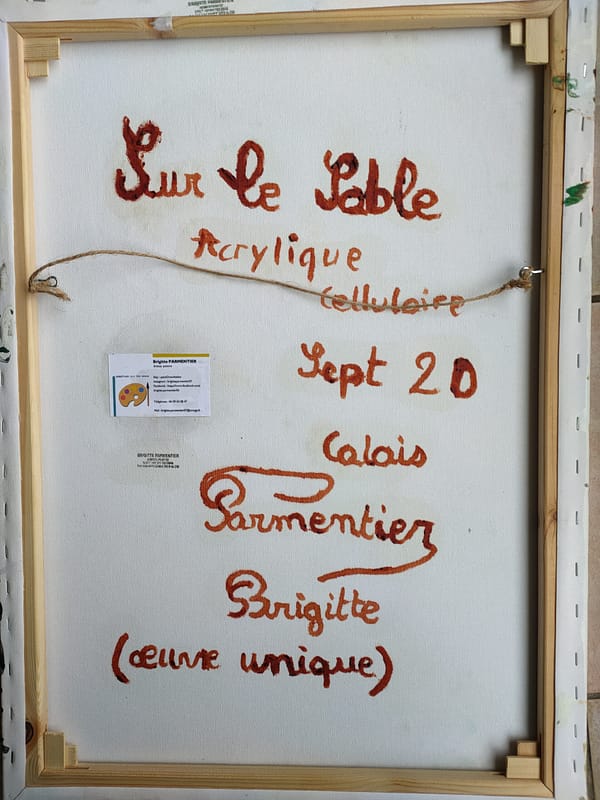 BRIGITTE PARMENTIER
Sur le Sable
Acrylique
Celluloire
Sept 20
Brigitte PARMENTIER
BRIGITTE PARMENTIER
Calais
Parmentier
Brigitte
(œuvre unique)